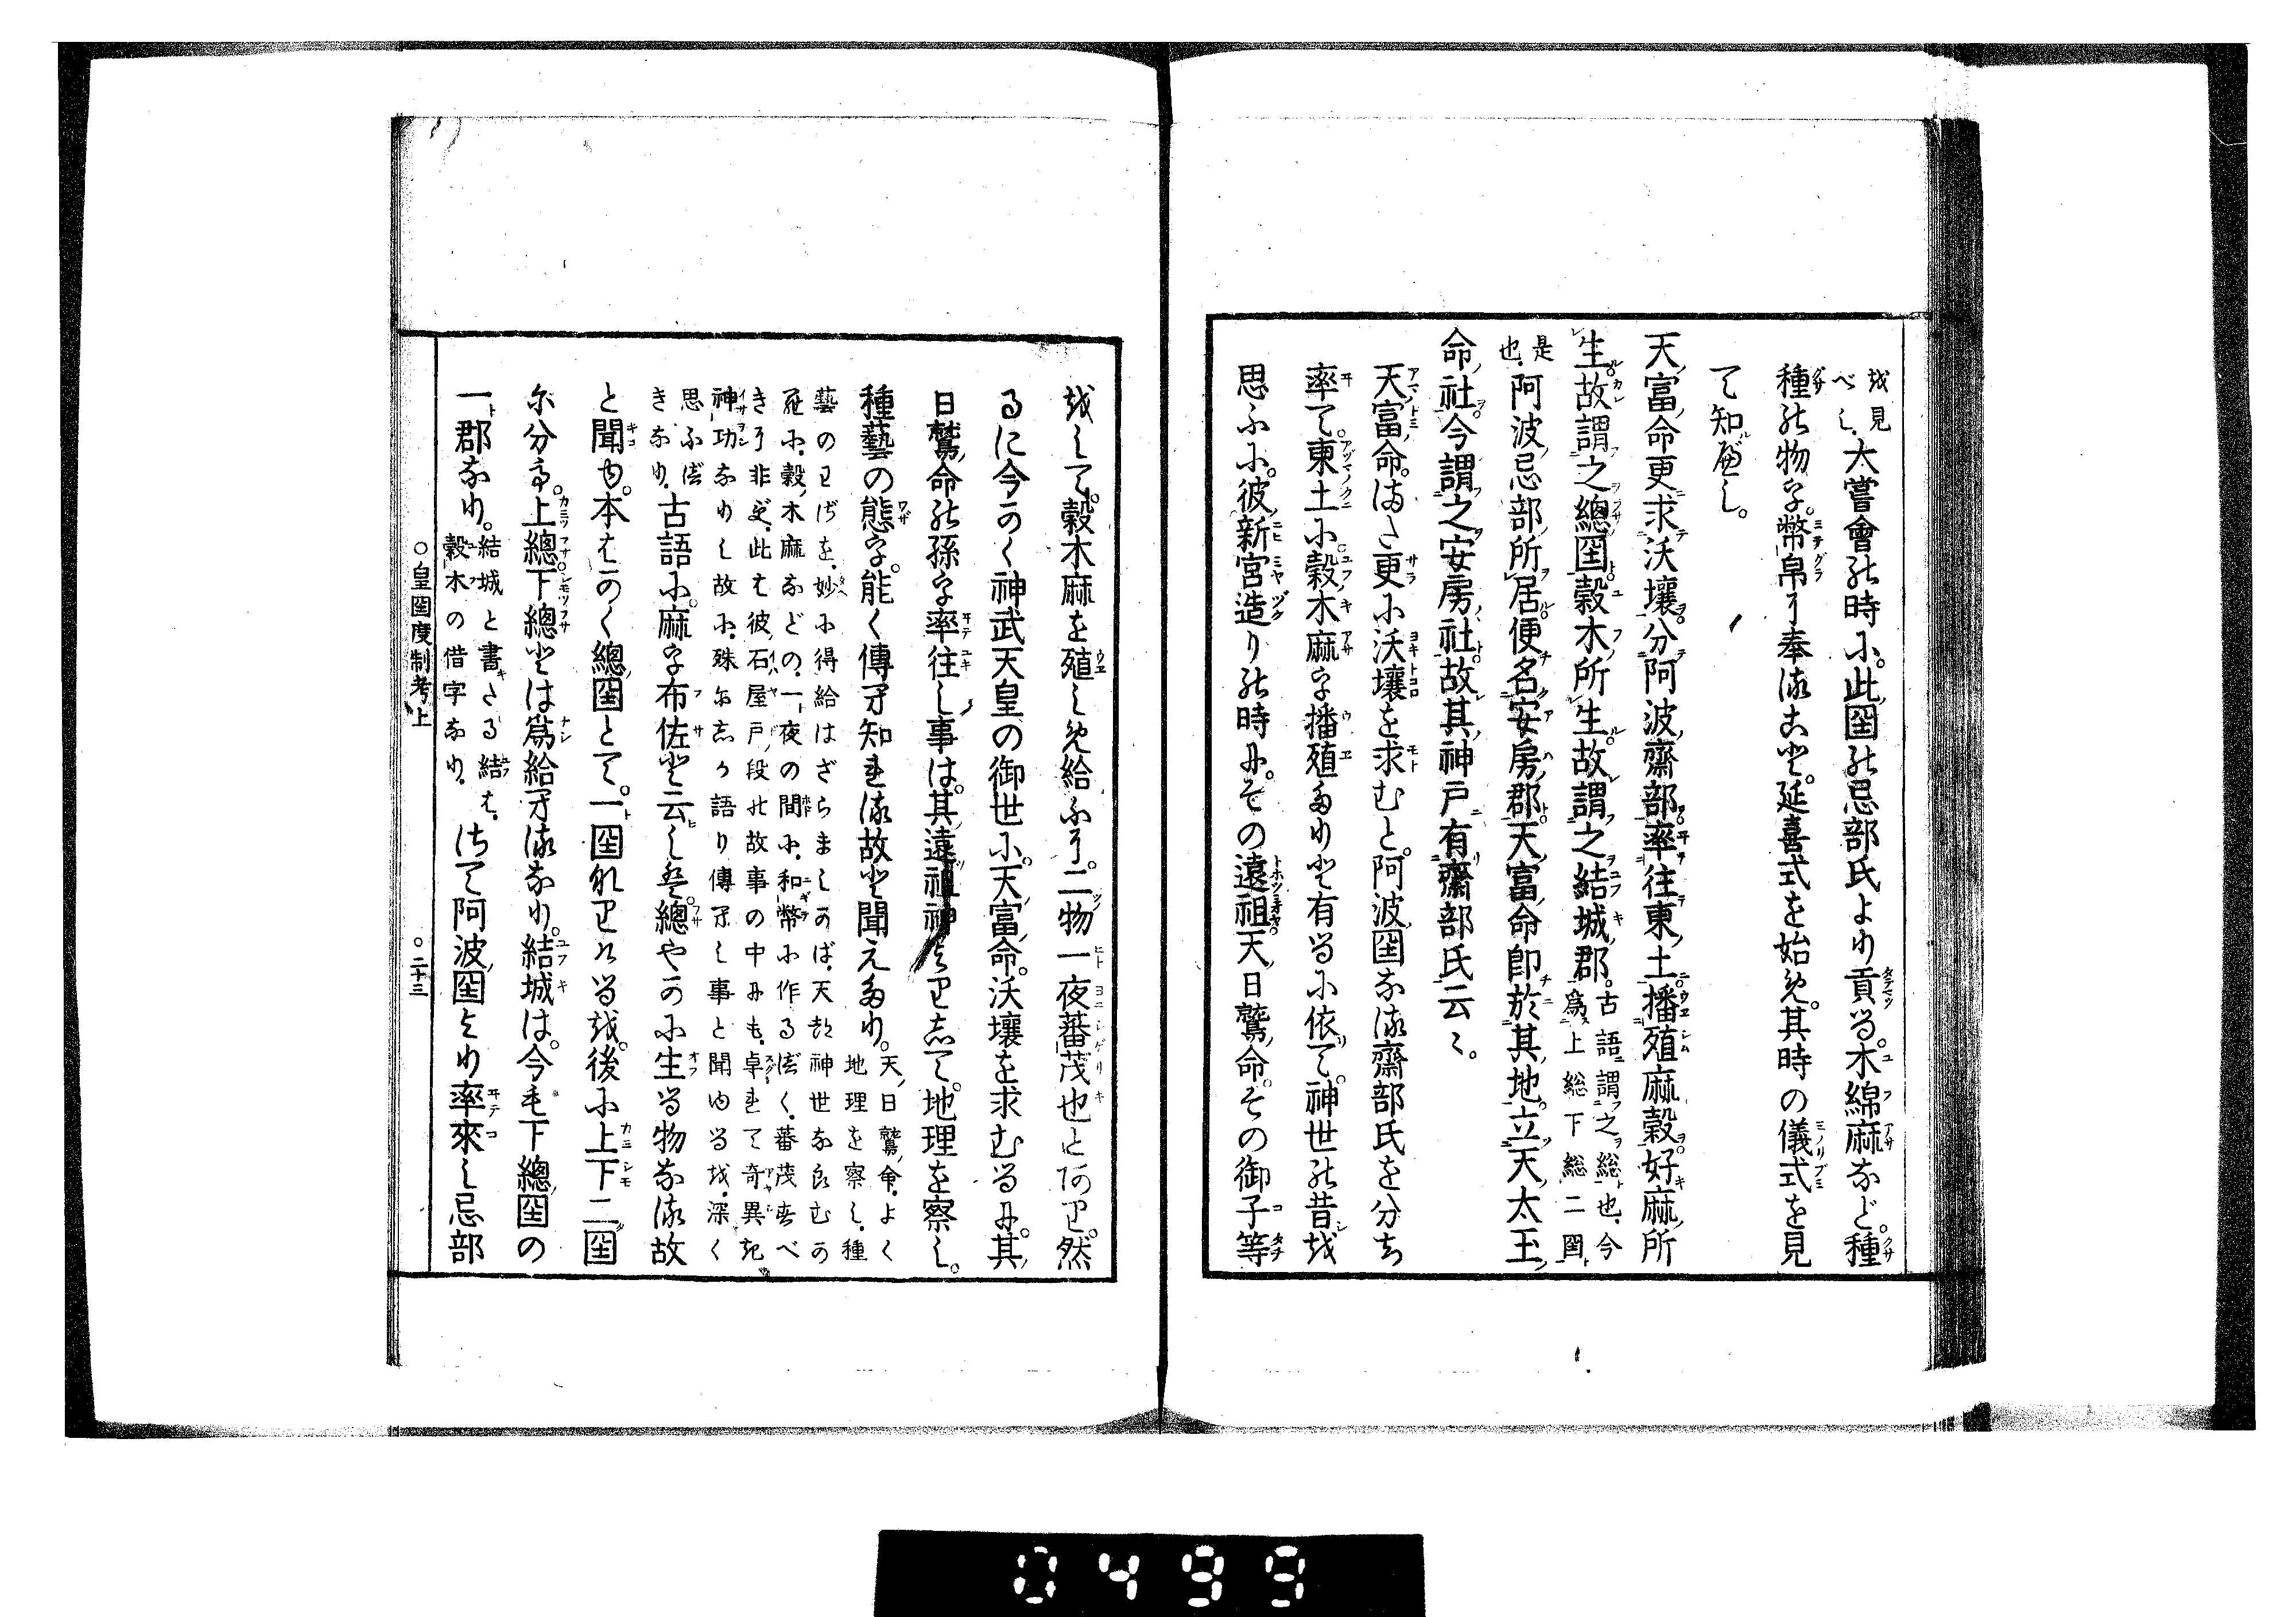 越見べし。大嘗會の時に。此国の忌部氏より貢る。木綿麻など。種
種の物を。幣帛に奉ること。延喜式を始め。其時の儀式を見
て知べし。
天富命更求沃壤分阿波齋部率往東土播殖麻穀好麻所
生故謂之總国穀木所生故謂之結城郡。古語謂之総也、今為上総下総二国
是也、阿波忌部所居便名安房郡天富命即於其地立天太玉
命社今謂之安房社故其神戸有齋部氏云々。
天富命。また更に沃壤を求むと。阿波国なる齋部氏を分ち
率て。東土に穀木麻を播殖たりと有るに依て。神世の昔を
思ふに。彼新宮造りの時に。その遠祖天日鷲命。その御子等
をして。穀木麻を殖しめ給ふに。二物一夜蕃茂也とあり。然
るに今かく神武天皇の御世に。天富命。沃壤を求むるに。其
日鷲命の孫を率往し事は。其遠祖神より して。地理を察し。
種藝の態を。能く傳へ知れる故と聞えたり。天日鷲命、よく地理を察し、種
藝のわざを、妙に得給はざらましかば、天都神世ならむか
に、穀木麻などの、一夜の間に、和幣に作るばく、蕃茂すべ
きに非ず、此は彼石屋戸段の故事の中にも、卓れて奇異き
神功なりし故に、殊にしか語り傳へし事と聞ゆるを、深く
思ふばきなり。古語に。麻を布佐と云しは總やかに生る物なる故
と聞ゆ。本はかく總国とて。一国なりけるを。後に上下二国
に分て。上總下總とは為給へるなり。結城は。今も下總国の
一郡なり。結城と書きたる結は、穀木の借字なり。 さて阿波国より率來し忌部
○皇国度制考上 ○二十三
0499